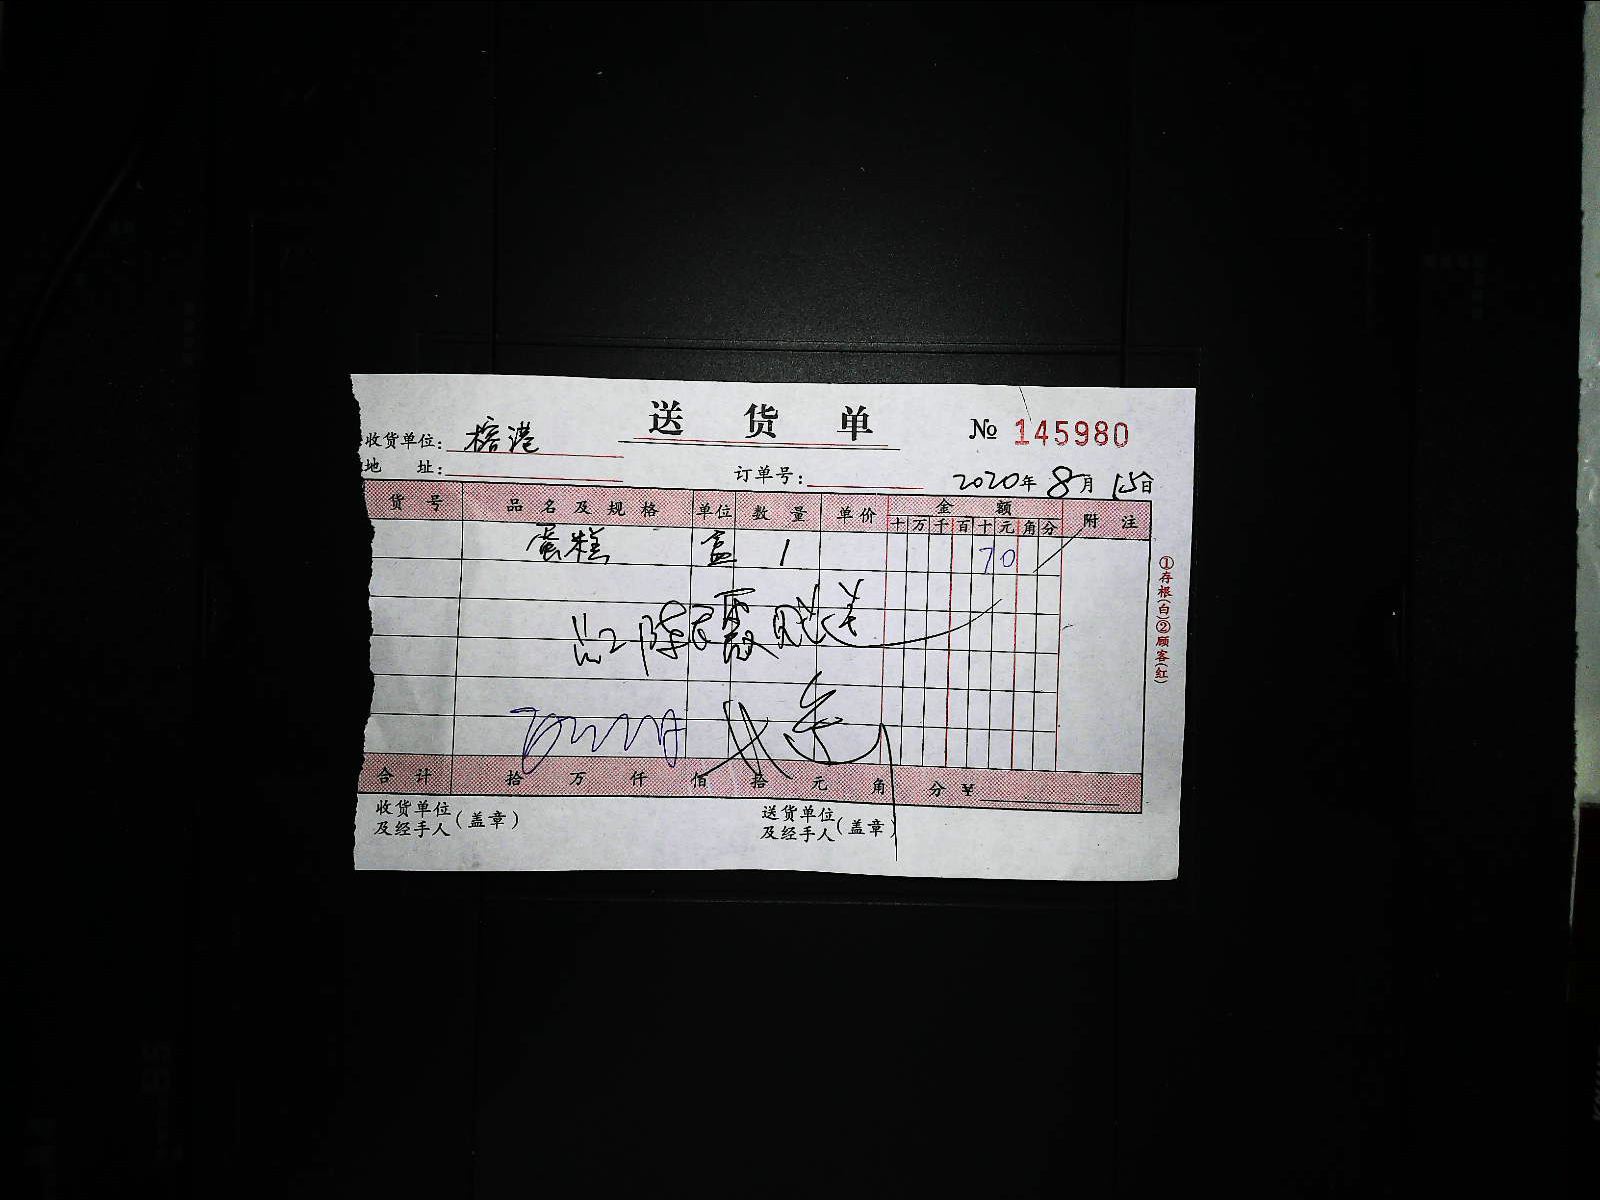 送货单
№ 145980
收货单位: 榕港
地 址:
订单号:
2020年 8月 15日
货号 品名及规格 单位 数量 单价 金额 附注
十万千百十元角分
蛋糕 盒 1 70
陈霞赠送
合计 拾 万 仟 佰 拾 元 角 分 ¥
收货单位及经手人(盖章)
送货单位及经手人(盖章)
①存根(白)②顾客(红)